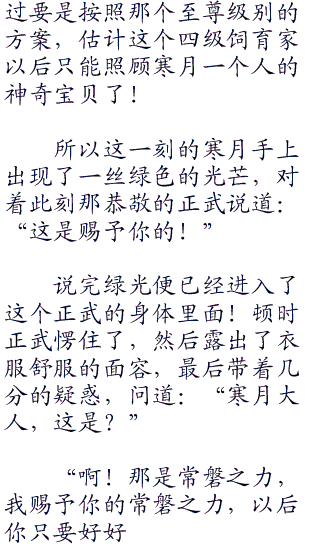 过要是按照那个至尊级别的
方案，估计这个四级饲育家
以后只能照顾寒月一个人的
神奇宝贝了！
所以这一刻的寒月手上
出现了一丝绿色的光芒，对
着此刻那恭敬的正武说道：
“这是赐予你的！”
说完绿光便已经进入了
这个正武的身体里面！顿时
正武愣住了，然后露出了衣
服舒服的面容，最后带着几
分的疑惑，问道：“寒月大
人，这是？”
“啊！那是常磐之力，
我赐予你的常磐之力，以后
你只要好好